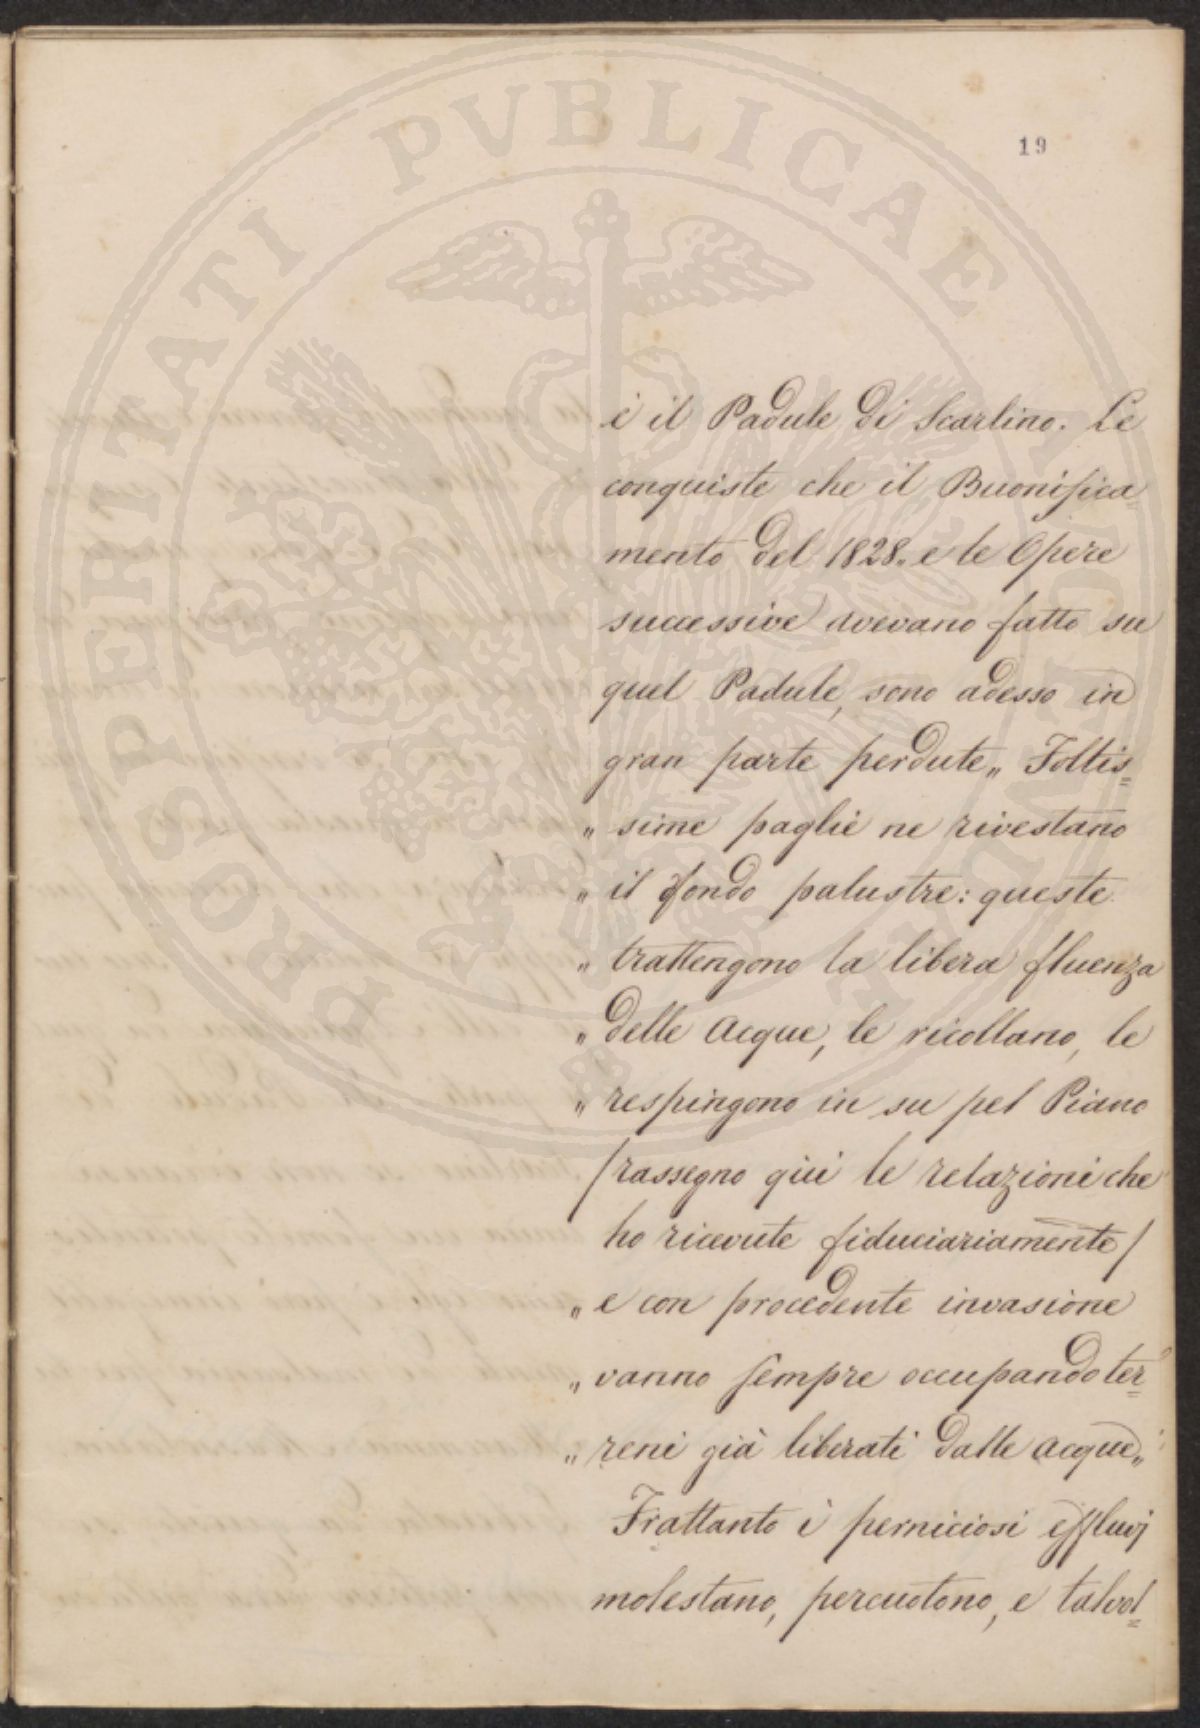 PROSPERITATI PVBLICAE AVGENDAE
19
è il Padule di Scarlino. Le
conquiste che il Buonifica=
mento del 1828. e le Opere
successive avevano fatto su
quel Padule, sono adesso in
gran parte perdute „ Foltis=
„ sime paglie ne rivestano
„ il fondo palustre: queste
„ trattengono la libera fluenza
„ delle Acque, le ricollano, le
„ respingono in su pel Piano
/ rassegno qui le relazioni che
ho ricevute fiduciariamente /
„ e con procedente invasione
„ vanno sempre occupando ter=
„ reni già liberati dalle acque „
Frattanto i perniciosi effluvj
molestano, percuotono, e talvol=